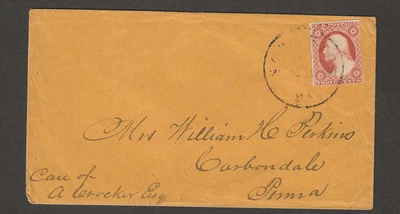 U.S. POSTAGE
THREE CENTS
PA
Mrs William H. Perkins
Carbondale
Penna
Care of
A Crocker Esq